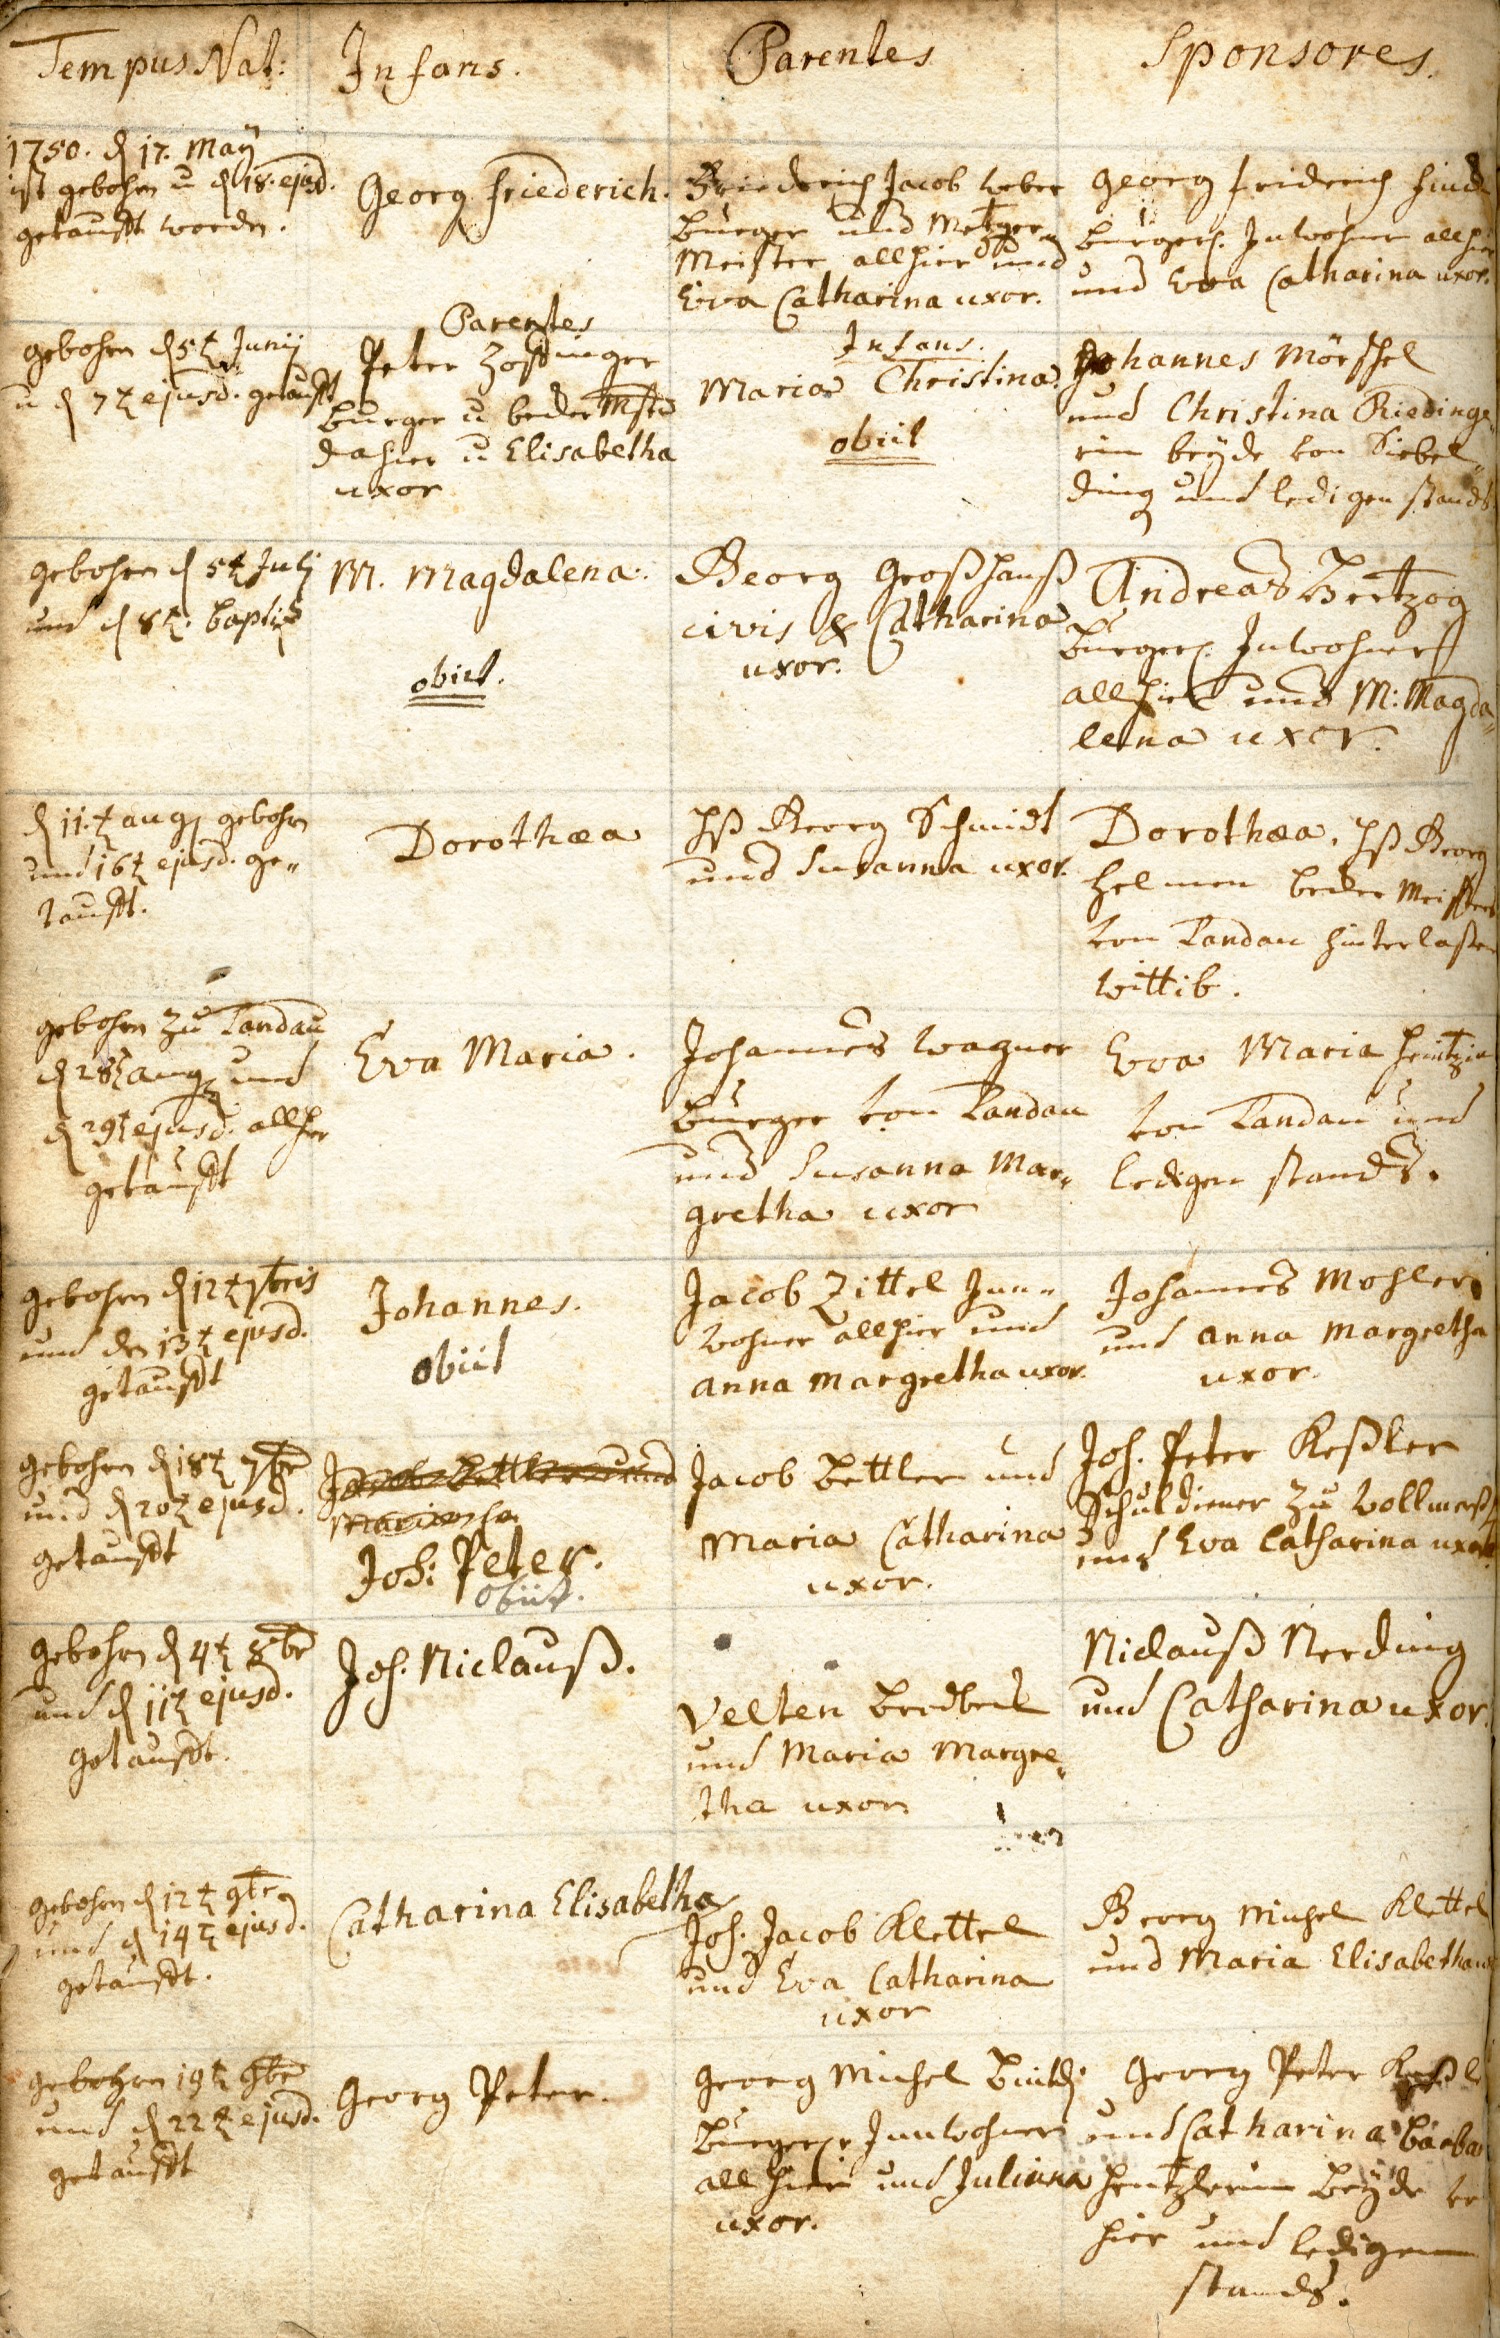 Tempus Nat:
Infans.
Parentes
Sponsores.
1750. d 17. Maÿ
ist gebohrn u d 18. ejusd.
getaufft worden.
Georg friederich.
Friederich Jacob Weber
Burger und Metzger„
Meister allhier und
Eva Catharina uxor.
Georg friderich
burgerl. Inwohner allhier
und Eva Catharina uxor.
gebohrn d 5t Junij
u d 7t ejusd. getaufft
Parentes
Peter
Burger u beder Mstr
dahier u Elisabetha
uxor
Infans.
Maria Christina.
obiit
Johannes Mörschel
und Christina Riedinge„
rin beÿde von Siebel„
ding und ledigen stands
gebohrn d 5t Julj
und d 8t. baptiz
M. Magdalena.
obiit.
Georg Großhanß
civis & Catharina
uxor.
Andreas Hertzog
Burgerl. Inwohner
allhier und M: Magda„
lena uxor.
d 11.t aug gebohrn
und 16t ejusd. ge„
taufft.
Dorothæa
Hß Georg Schmidt
und Susanna uxor.
Dorothæa, Hß Georg
Helmen beder Meisters
von Landau hinterlaßen
Wittib.
gebohrn zu Landau
d 28t aug und
d 29t ejusd. allhier
getaufft
Eva Maria.
Johannes Wagner
Burger von Landau
und Susanna Mar„
gretha uxor
Eva Maria Heintzin
von Landau und
ledigen stands.
gebohrn d 12t 7bris
und den 13t ejusd.
getaufft
Johannes.
obiit
Jacob Zittel Inn„
wohner allhier und
anna Margretha uxor.
Johannes Mohler
und anna Margretha
uxor.
gebohrn d 18t 7br
und d 20t ejusd.
getaufft
Jacob Bettler und
Joh: Peter.
obiit.
Jacob Bettler und
Maria Catharina
uxor.
Joh. Peter Keßler
Schuldiener zu
und Eva Catharina uxor
gebohrn d 4t 8br
und d 11t ejusd.
getaufft.
Joh. Niclauß.
Velten
und Maria Margre„
tha uxor
Niclauß Nerding
und Catharina uxor.
gebohrn d 12t 9br
und d 14t ejusd.
getaufft.
Catharina Elisabetha
Joh. Jacob Klettel
und Eva Catharina
uxor
Georg Michel Klettel
und Maria Elisabetha
gebohrn 19t 9br
und d 22t ejusd.
getaufft
Georg Peter.
Georg Michel
Burgerl Innwohner
allhier und Juliana
uxor.
Georg Peter
und Catharina Barbar
beÿde
hier und ledigen
stands.